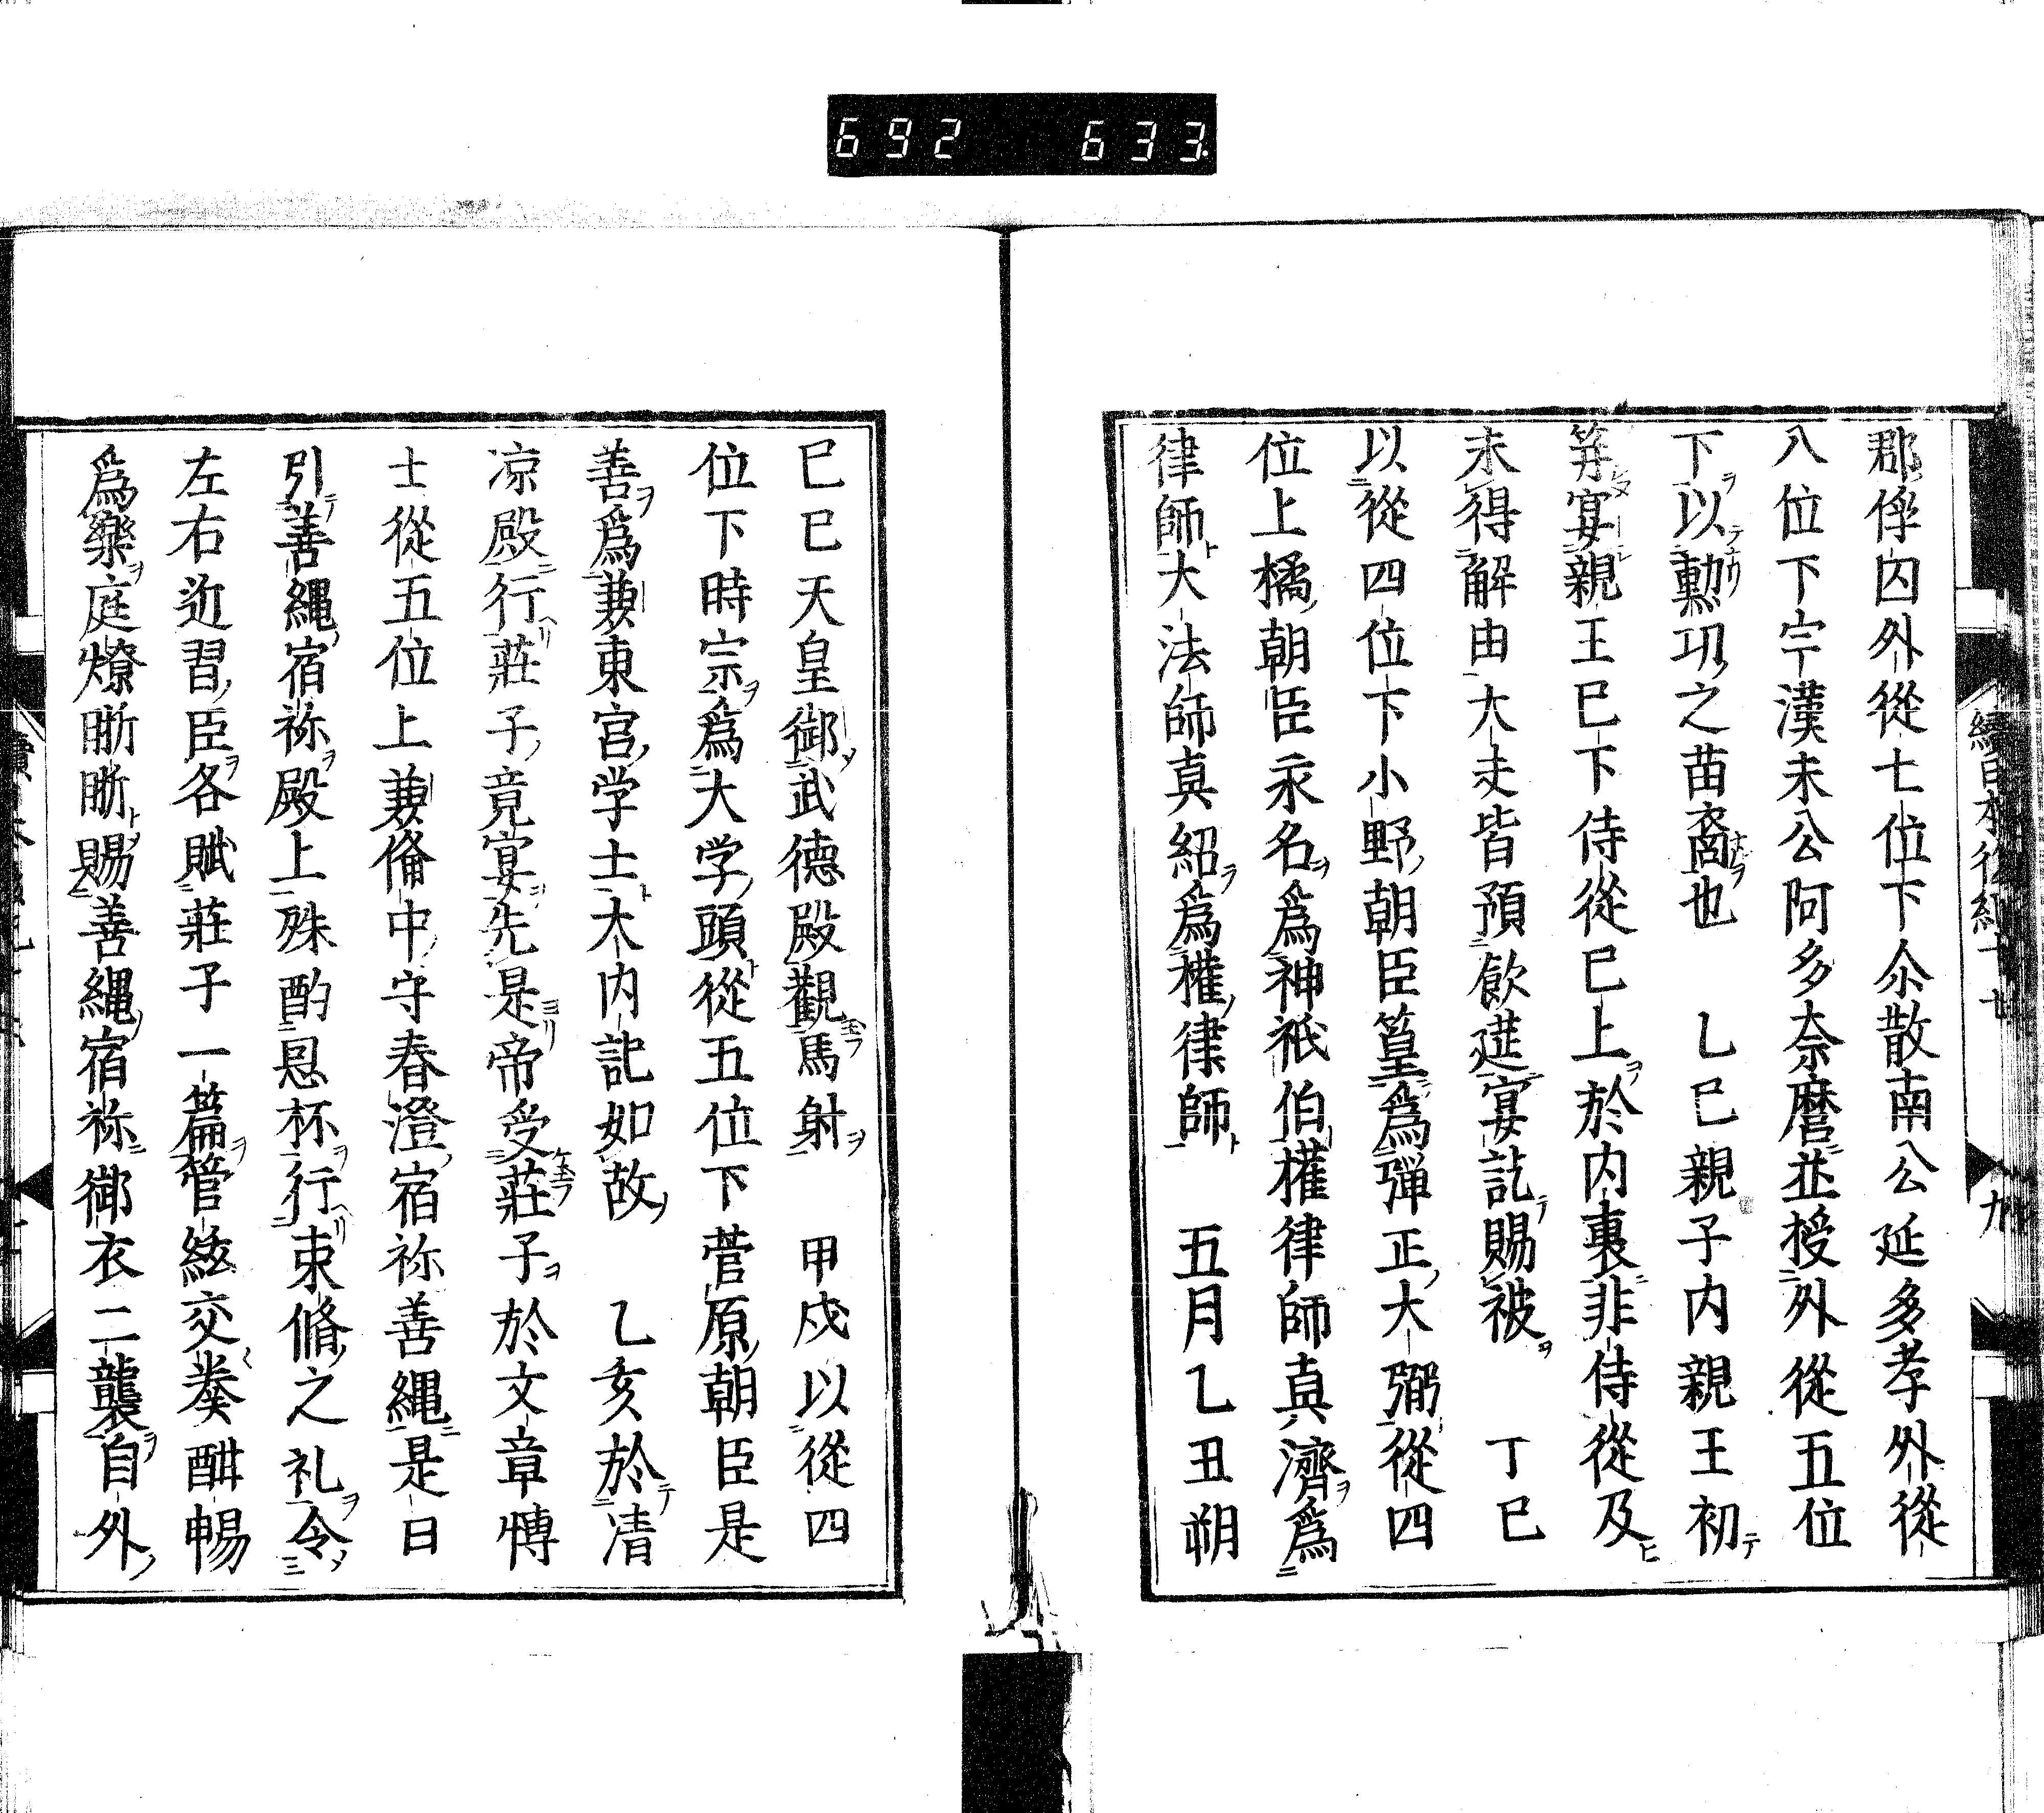 692 633
郡俘囚外從七位下尒散南公延多孝外從
八位下宇漢未公阿多奈麿並授外從五位
下以勲功之苗裔也 乙巳親子内親王初
笄宴親王巳下侍從巳上於内裏非侍從及
未得解由大夫皆預飲進宴訖賜被 丁巳
以從四位下小野朝臣篁爲弾正大弼從四
位上橘朝臣永名爲神祇伯權律師真濟爲
律師大法師真紹爲權律師 五月乙丑朔
巳巳天皇御武德殿觀馬射 甲戌以從四
位下時宗爲大学頭從五位下菅原朝臣是
善爲兼東宮学士大内記如故 乙亥於清
凉殿行莊子竟宴先是帝受莊子於文章博
士從五位上兼備中守春澄宿祢善繩是日
引善繩宿祢殿上殊酌恩杯行束脩之礼令
左右近習臣各賦莊子一篇管絃交奏酣暢
爲樂庭燎晣晣賜善繩宿祢御衣二襲自外
九